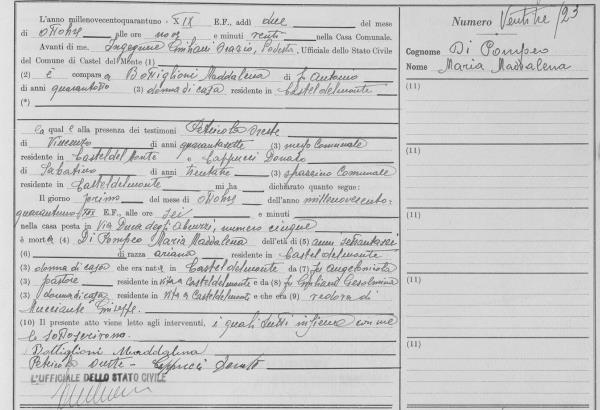 L'anno millenovecentoquarantuno - XIX E.F., addì due del mese
di ottobre, alle ore nove e minuti venti, nella Casa Comunale.
Avanti di me. Ingegnere Emiliani Orazio, Podestà, Ufficiale dello Stato Civile
del Comune di Castel del Monte (1)
(2) è compars a Bottiglioni Maddalena di fu Antonio
di anni quarantotto (3) donna di casa residente in Casteldelmonte
(*)
la qual e alla presenza dei testimoni Petricola Oreste
di Vincenzo di anni quarantasette (3) messo Comunale
residente in Castel del Monte e Cappucci Donato
di Sabatino di anni trentatre (3) spazzino Comunale
residente in Casteldelmonte mi ha dichiarato quanto segue:
Il giorno primo del mese di ottobre dell'anno millenovecento-
quarantuno XIX E.F., alle ore sei e minuti
nella casa posta in Via Duca degli Abruzzi, numero cinque
è morta (4) Di Pompeo Maria Maddalena dell'età di (5) anni settantasei
(6) di razza ariana residente in Casteldelmonte
(3) donna di casa che era nat a in Casteldelmonte da (7) fu Angelomista
(3) pastore residente in vita a Casteldelmonte e da (8) fu Emiliani Gesolmina
(3) donna di casa residente in vita a Casteldelmonte e che era (9) vedova di
Mucciante Giuseppe.
(10) Il presente atto viene letto agli intervenuti, i quali tutti insieme con me
lo sottoscrivono.
Bottiglioni Maddalena
Petricola Oreste - Cappucci Donato
L'UFFICIALE DELLO STATO CIVILE
Numero Ventitre /23
Cognome Di Pompeo
Nome Maria Maddalena
(11)
(11)
(11)
(11)
(11)